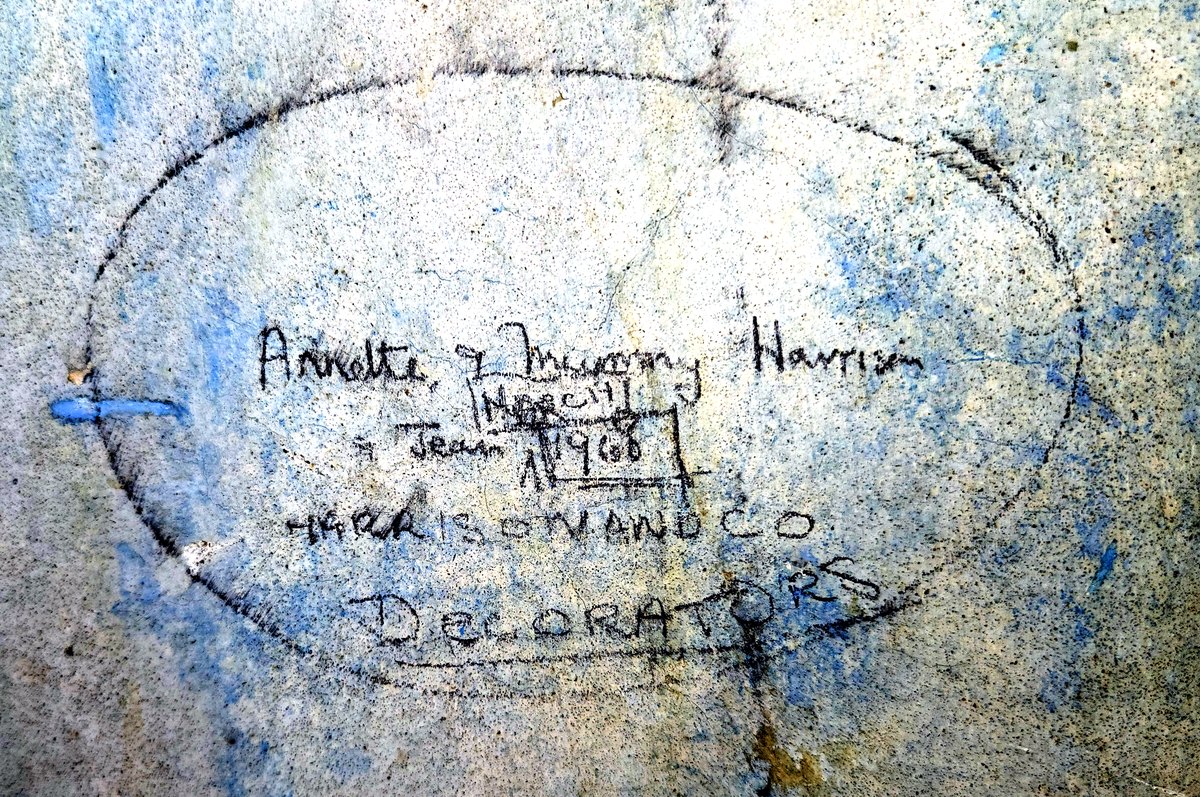 Annette, & Mummy Harrison
MARCH
& Jean 1968
HARRISON AND CO
DECORATORS